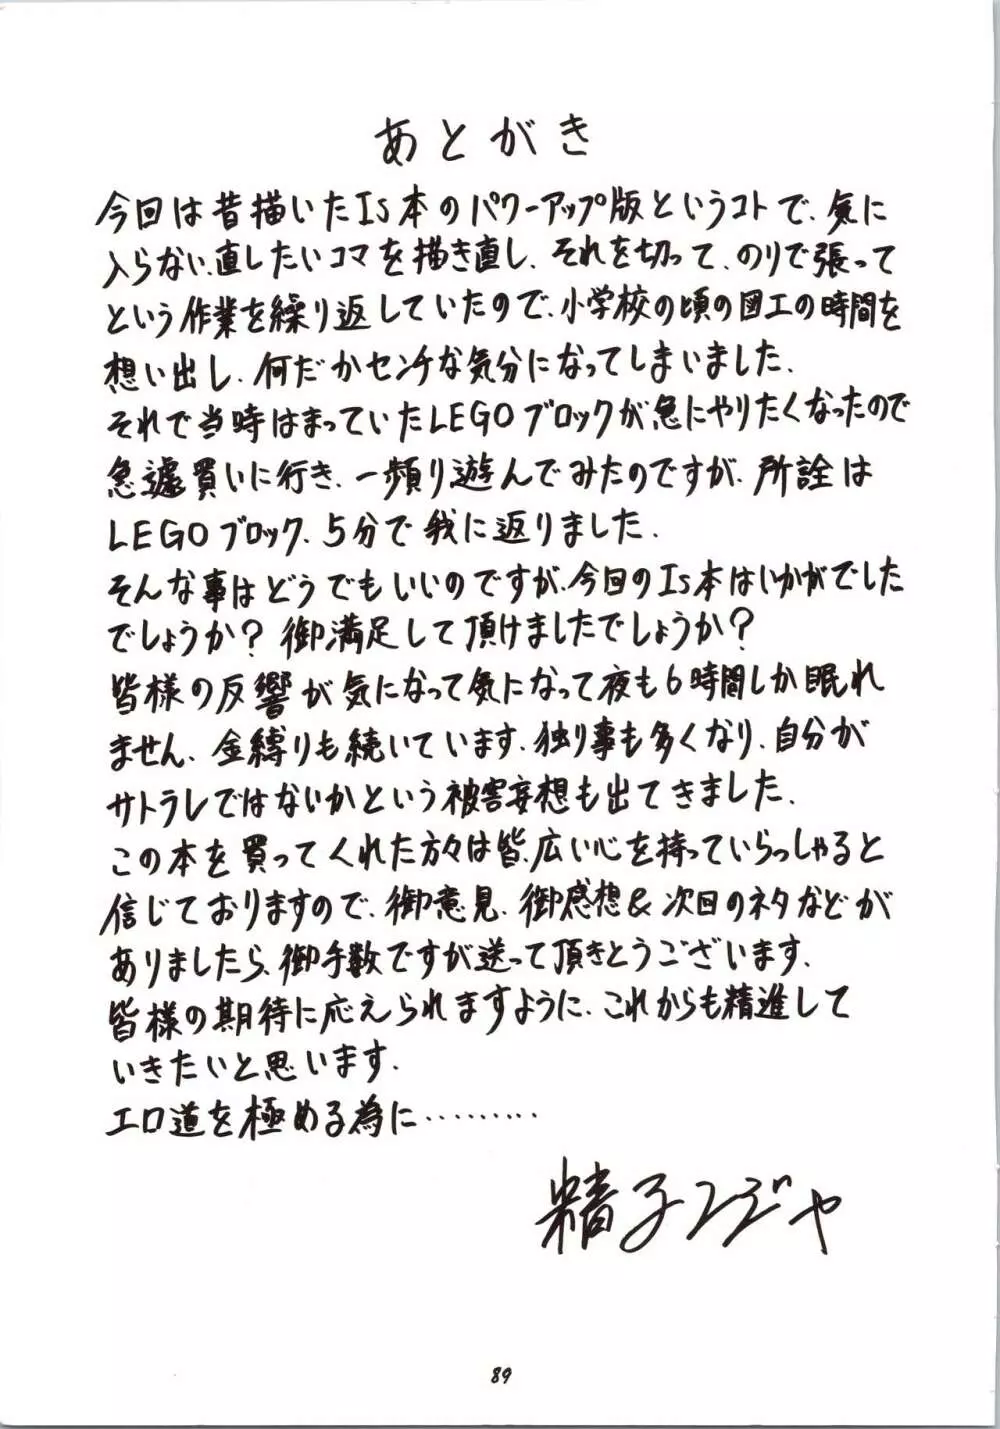 あとがき
今回は昔描いたIs本のパワーアップ版というコトで、気に
入らない、直したいコマを描き直し、それを切って、のりで張って
という作業を繰り返していたので、小学校の頃の図工の時間を
想い出し、何だかセンチな気分になってしまいました。
それで当時はまっていたLEGOブロックが急にやりたくなったので
急遽買いに行き、一頻り遊んでみたのですが、所詮は
LEGOブロック、5分で我に返りました。
そんな事はどうでもいいのですが、今回のIs本はいかがでした
でしょうか？御満足して頂けましたでしょうか？
皆様の反響が気になって気になって夜も6時間しか眠れ
ません、金縛りも続いています、独り事も多くなり、自分が
サトラレではないかという被害妄想も出てきました。
この本を買ってくれた方々は皆、広い心を持っていらっしゃると
信じておりますので、御意見、御感想&次回のネタなどが
ありましたら、御手数ですが送って頂きとうございます。
皆様の期待に応えられますように、これからも精進して
いきたいと思います。
エロ道を極める為に………
精子ンジャ
89